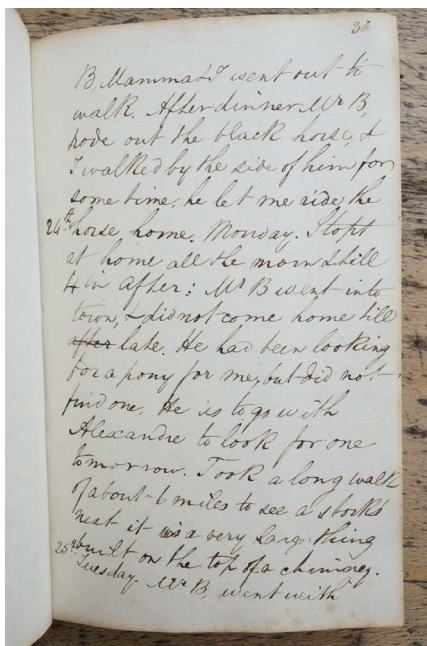 3
B, Mamma & I went out to
walk. After dinner Mr B,
rode out the black horse, &
I walked by the side of him for
some time, he let me ride the
24th horse home. Monday. Stopt
at home all the morn & till
4 in after: Mr B went into
town, & did not come home till
after late. He had been looking
for a pony for me, but did not
find one. He is to go with
Alexandre to look for one
tomorrow. Took a long walk
of about 6 miles to see a stork's
nest it is a very large thing
25th built on the top of a chimney.
Tuesday. Mr B, went with